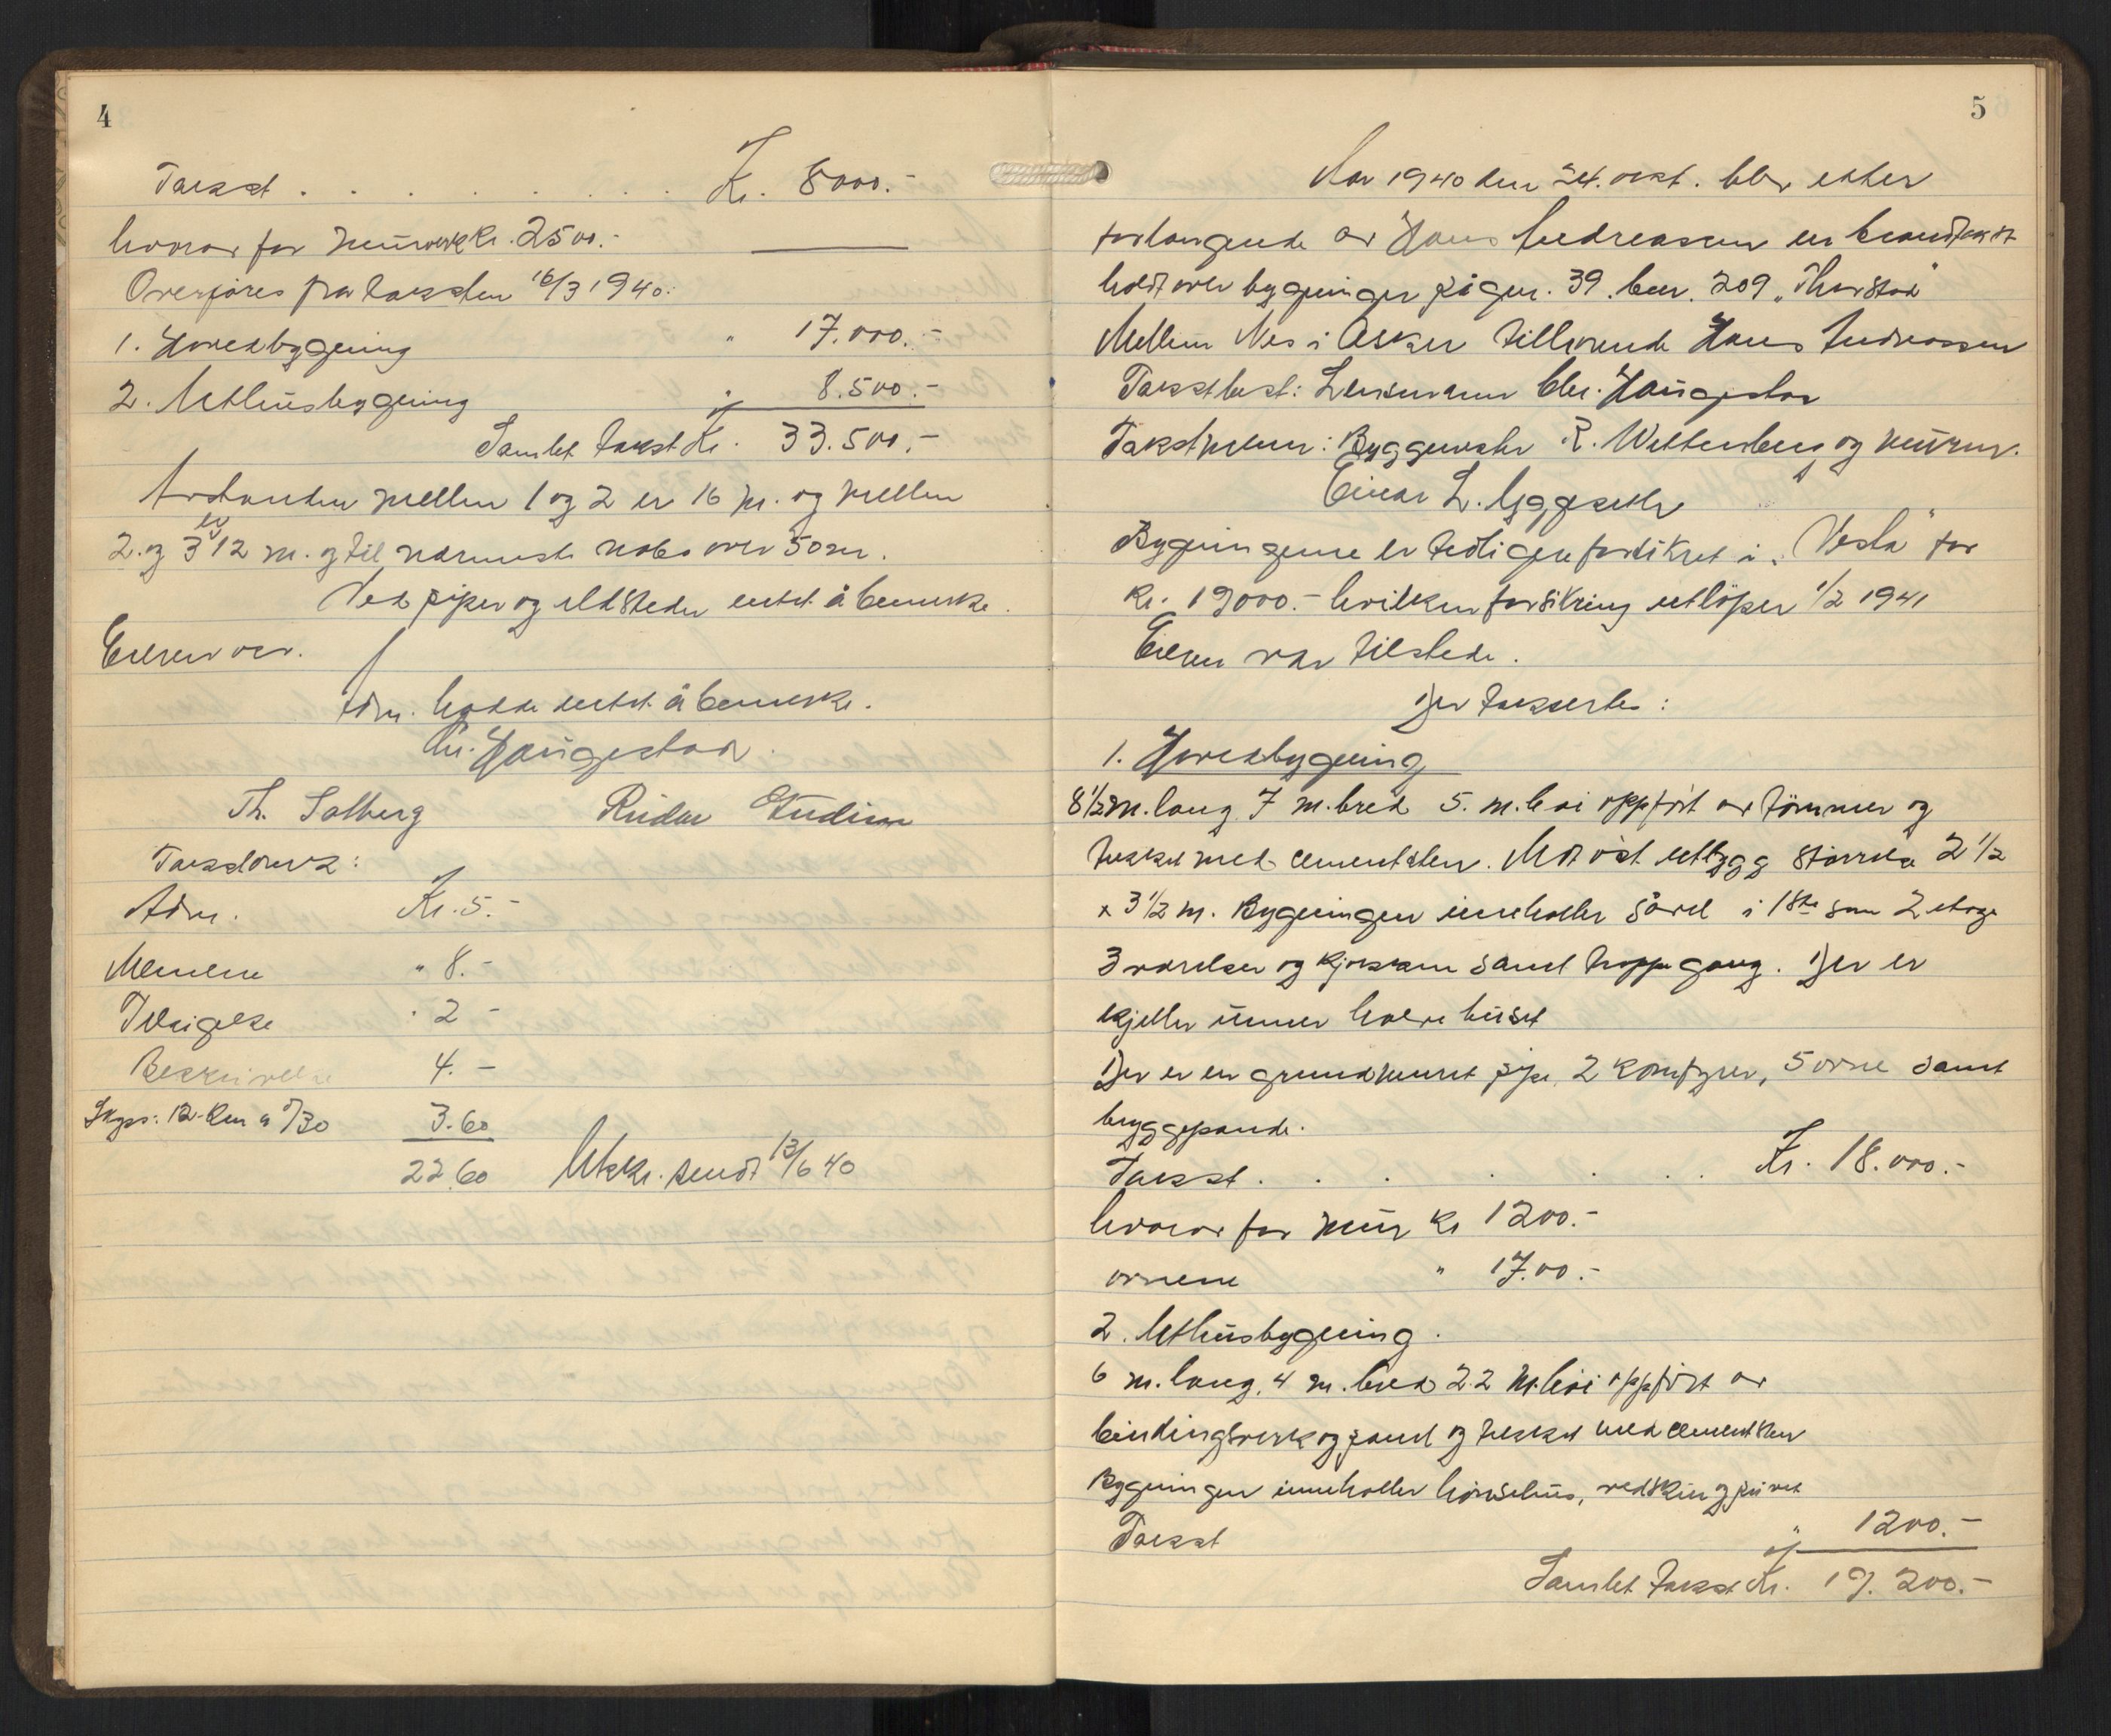 4
Takst . . . . . . . Kr. 8000.-
hvorav for murverk kr. 2500.-
Overføres fra taksten 16/3 1940:
1. Hovedbygning " 17.000.-
2. Uthusbygning " 8.500.-
Samlet takst Kr. 33.500.-
Avstanden mellem 1 og 2 er 16 m. og mellem
2. og 3 er 12 m. og til nærmeste nabo over 50 m.
Ved piper og ildsteder intet å bemerke.
Eieren var.
Adm. hadde intet å bemerke.
Chr. Haugestad.
Th. Solberg Reidar
Takstomk:
Adm. Kr. 5.-
Mennene " 8.-
Tilsigelse " 2 -
Beskrivelse 4. -
Skyss: 12 km a 0/30 3.60
22.60 Utskr. sendt 13/6 40
5
Aar 1940 den 24. okt. blev etter
forlangende av Hans Andreassen en branntakst
holdt over bygninger på gnr. 39. bnr. 209 „Thorstad"
Mellem Nes i Asker tilhørende Hans Andreassen
Takstbest: Lensmann Chr. Haugestad
Takstmenn: Byggmester R. Wettenberg og murm.
Einar L.
Bygningene er tidligere forsikret i „Vesta" for
kr. 19000.- hvilken forsikring utløper 1/2 1941
Eieren var tilstede.
Der takseertes:
1. Hovedbygning
8 1/2 m. lang 7 m. bred 5. m. høi oppført av tømmer og
tekket med cementsten. Mot øst utbygg størrelse 2 1/2
x 3 1/2 m. Bygningen inneholder såvel i 1ste som 2 etage
3 værelser og kjøkken samt trappegang. Der er
kjeller under hele huset
Der er en grundmuret pipe, 2 komfyrer, 5 ovne samt
bryggepande.
Takst . . . . . . Kr. 18.000.-
hvorav for mur kr 1200.-
ovnene " 17.00.-
2. Uthusbygning.
6 m. lang, 4 m. bred 2.2 m. høi oppført av
bindingsverk og panel og tekket med cementsten
Bygningen inneholder hønsehus, vedskjul og privet
Takst " 1200.-
Samlet takst Kr. 19.200.-